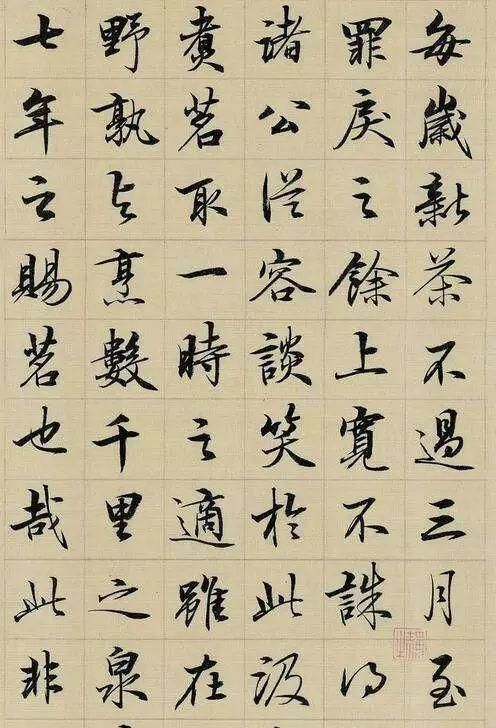 每歲新茶不過三月至
罪戾之餘上寬不誅得
諸公從容談笑於此汲
煮茗取一時之適雖在
野孰与烹數千里之泉
七年之賜茗也哉此非